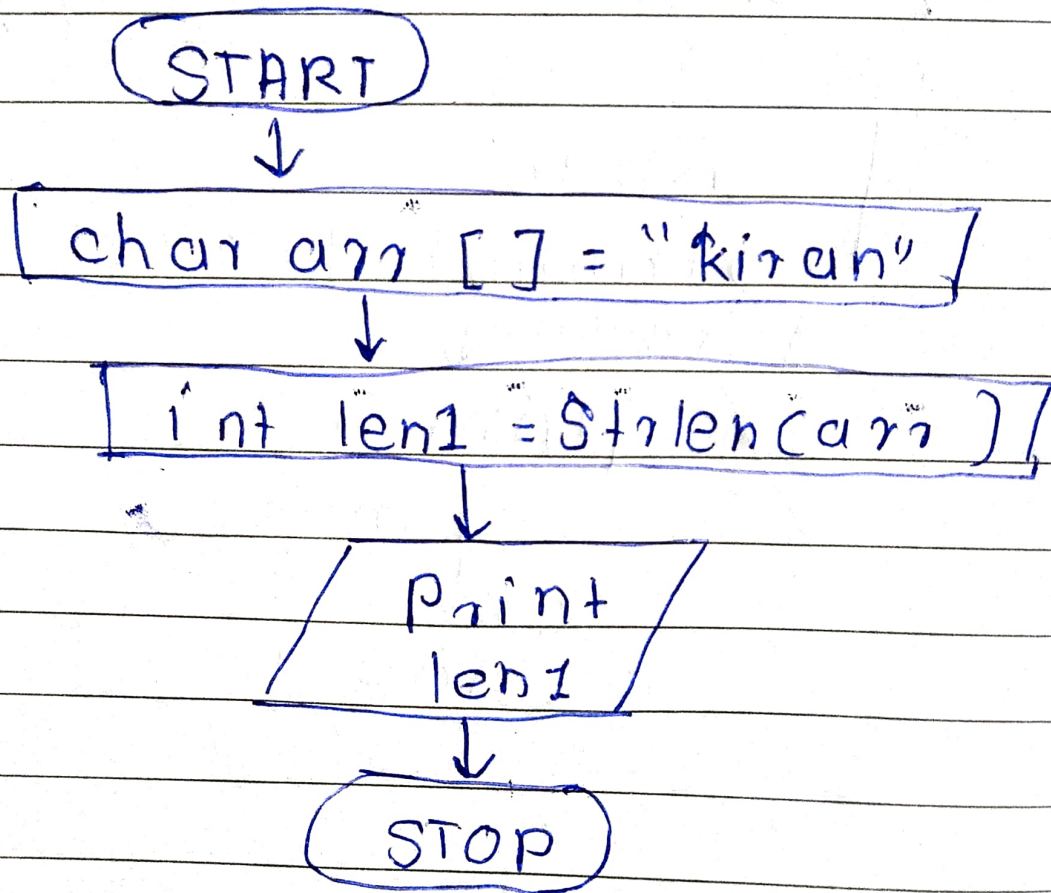 START
char arr [ ] = "kiran"
int len1 = Strlen(arr)
Print
len1
STOP